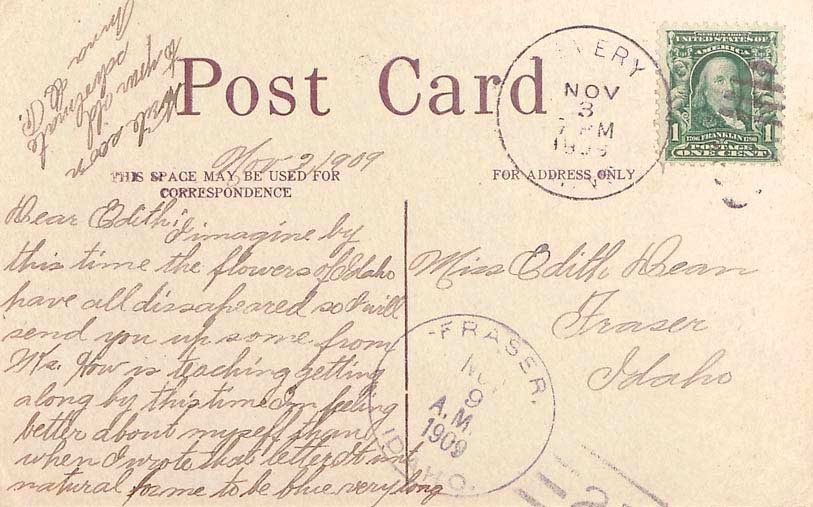 Post Card
THIS SPACE MAY BE USED FOR
CORRESPONDENCE
FOR ADDRESS ONLY
Nov 2, 1909
Dear Edith;
I imagine by
this time the flowers of Idaho
have all dissapeared so I will
send you up some from
How is teaching getting
along by this time Im feeling
better about myself than
when I wrote that letter It aint
natural for me to be blue very long
Write soon
to your old
schoolmate
Anna
Miss Edith Dean
Fraser
Idaho
VERY
NOV
3
7 M
SERIES 1902
UNITED STATES OF
AMERICA
1 FRANKLIN 1
POSTAGE
ONE CENT
FRASER.
NOV
9
A.M.
1909
IDAHO